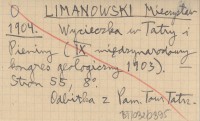 O LIMANOWSKI Mieczysław
1904. Wycieczka w Tatry i
Pieniny (IX międzynarodowy
kongres geologiczny 1903).
Stron 55, 8°.
Odbitka z Pam. Tow. Tatrz.